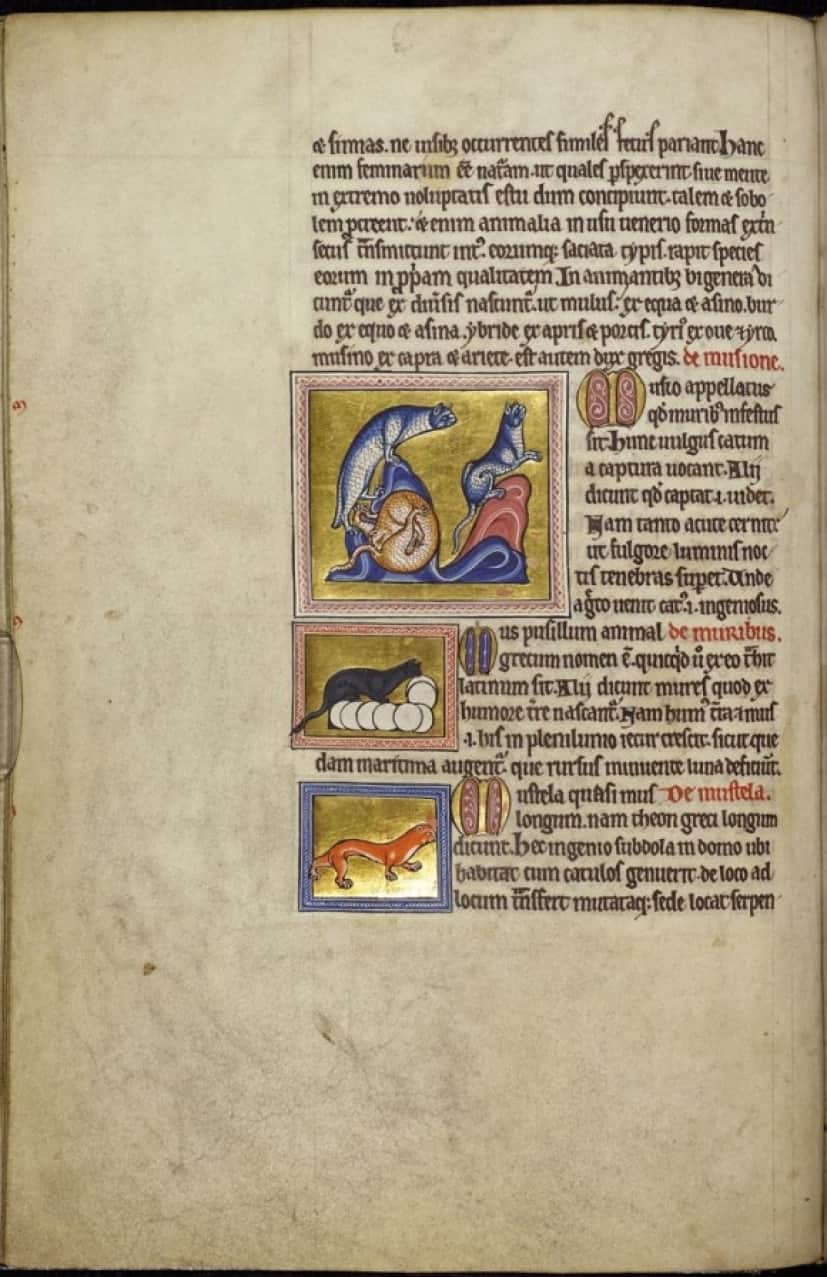 ⁊ simias. ne uisibꝫ occurrentes similes fetus pariant. Hanc
enim feminarum e͞e nat͞am. ut quales ꝑspexerint siue mente
in extremo uoluptatis estu dum concipiunt. talem ⁊ sobo
lem ꝓcreent. ⁊enim animalia in usu uenerio formas ext͞n
secus t͞nsmittunt int᷒. eorumqꝫ saciata typis. rapit species
eorum in ꝓp͞am qualitatem. In animantibꝫ bigenera di
cunt᷒ que ex diu͞sis nascunt᷒. ut mulus. ex equa ⁊ asino. bur
do ex equo ⁊ asina. ybride ex apris ⁊ porcis. tyrꝰ ex oue ⁊ yrco.
musino ex capra ⁊ ariete. est autem dux gregis. de musione.
Musio appellatus
qd̄ muribꝰ infestus
sit. Hunc uulgus catum
a captura uocant. Alij
dicunt qd̄ captat .i. uidet.
Nam tanto acute cernit.
ut fulgore luminis noc
tis tenebras suꝑet. Unde
a greco uenit catꝰ .i. ingeniosus.
Mus pusillum animal de muribus.
grecum nomen ē. quicq̇d ū ex eo t͞hit
latinum fit. Alij dicunt mures quod ex
humore t͞re nascant᷒. Nam humꝰ t͞ra. ⁊ mus
.i. his in plenilunio iecur crescit. sicut que
dam maritima augent᷒. que rursus minuente luna deficiūt.
Mustela quasi mus De mustela.
longum. nam theon greci longum
dicunt. Hec ingenio subdola in domo ubi
habitat cum catulos genuerit. de loco ad
locum t͞nsfert mutataqꝫ sede locat. serpen